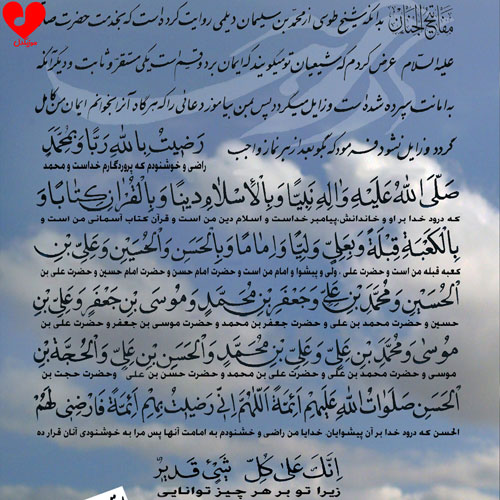 مفاتیح الجنان
بدانکه شیخ طوسی از محمد بن سلیمان دیلمی روایت کرده است که بخدمت حضرت صادق
علیه السلام عرض کردم که شیعیان تو میگویند که ایمان بر دو قسم است یکی مستقر و ثابت و دیگر آنکه
به امانت سپرده شده است و زایل میگردد پس من بیاموز دعائی را که هرگاه آنرا بخوانم ایمان من کامل
گردد و زایل نشود فرمود که بگو بعد از هر نماز واجب رَضيتُ بِاللهِ رَبًّا وَبِمُحَمَّدٍ
راضی و خوشنودم که پروردگارم خداست و محمد
صَلَّى اللهُ عَلَيْهِ وَالِهِ نَبِيًّا وَبِالْاِسْلامِ دينًا وَبِالْقُرْانِ كِتابًا وَ
که درود خدا بر او و خاندانش، پیامبر خداست و اسلام دین من است و قرآن کتاب آسمانی من است و
بِالْكَعْبَةِ قِبْلَةً وَبِعَلِيٍّ وَلِيًّا وَاِمامًا وَبِالْحَسَنِ وَالْحُسَيْنِ وَعَلِيِّ بْنِ
کعبه قبله من است و حضرت علی ، ولی و پیشوا و امام من است و حضرت امام حسن و حضرت امام حسین و حضرت علی بن
الْحُسَيْنِ وَمُحَمَّدِ بْنِ عَلِيٍّ وَجَعْفَرِ بْنِ مُحَمَّدٍ وَمُوسَى بْنِ جَعْفَرٍ وَعَلِيِّ بْنِ
حسین و حضرت محمد بن علی و حضرت جعفر بن محمد و حضرت موسی بن جعفر و حضرت علی بن
مُوسى وَمُحَمَّدِ بْنِ عَلِيٍّ وَعَلِيِّ بْنِ مُحَمَّدٍ وَالْحَسَنِ بْنِ عَلِيٍّ وَالْحُجَّةِ بْنِ
موسی و حضرت محمد بن علی و حضرت علی بن محمد و حضرت حسن بن علی وحضرت حجت بن
الْحَسَنِ صَلَواتُ اللهِ عَلَيْهِمْ اَئِمَّةً اَللّهُمَّ اِنّي رَضيتُ بِهِمْ اَئِمَّةً فَارْضَني لَهُمْ
الحسن که درود خدا بر آن پیشوایان خدایا من راضی و خشنودم به امامت آنها پس مرا به خوشنودی آنان قرار ده
اِنَّكَ عَلى كُلِّ شَيْءٍ قَديرٌ
زیرا تو بر هر چیز توانایی